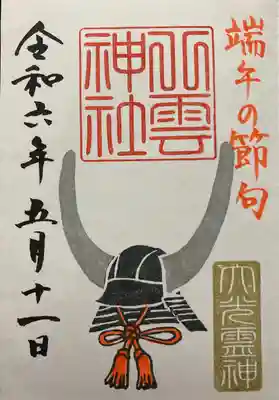 端午の節句
八雲神社
令和六年 五月十一日